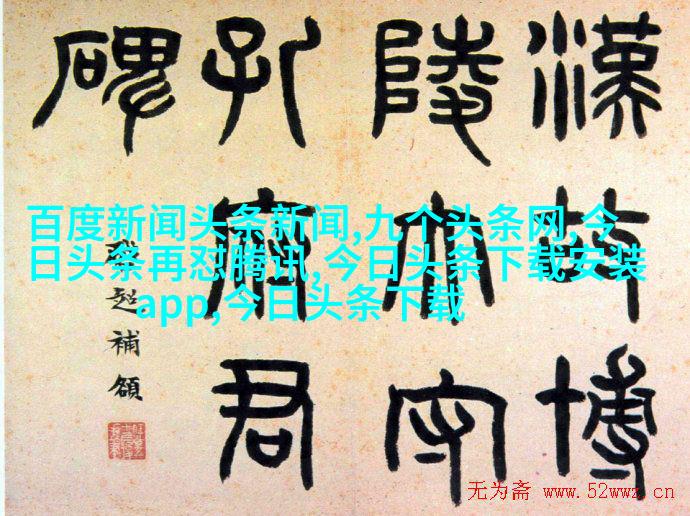 漢故博
陵太守
孔君
碑
超補額
百度新闻头条新闻,九个头条网,今
日头条再怼腾讯,今日头条下载安装
app,今日头条下载
无为斋 www.52wwz.cn